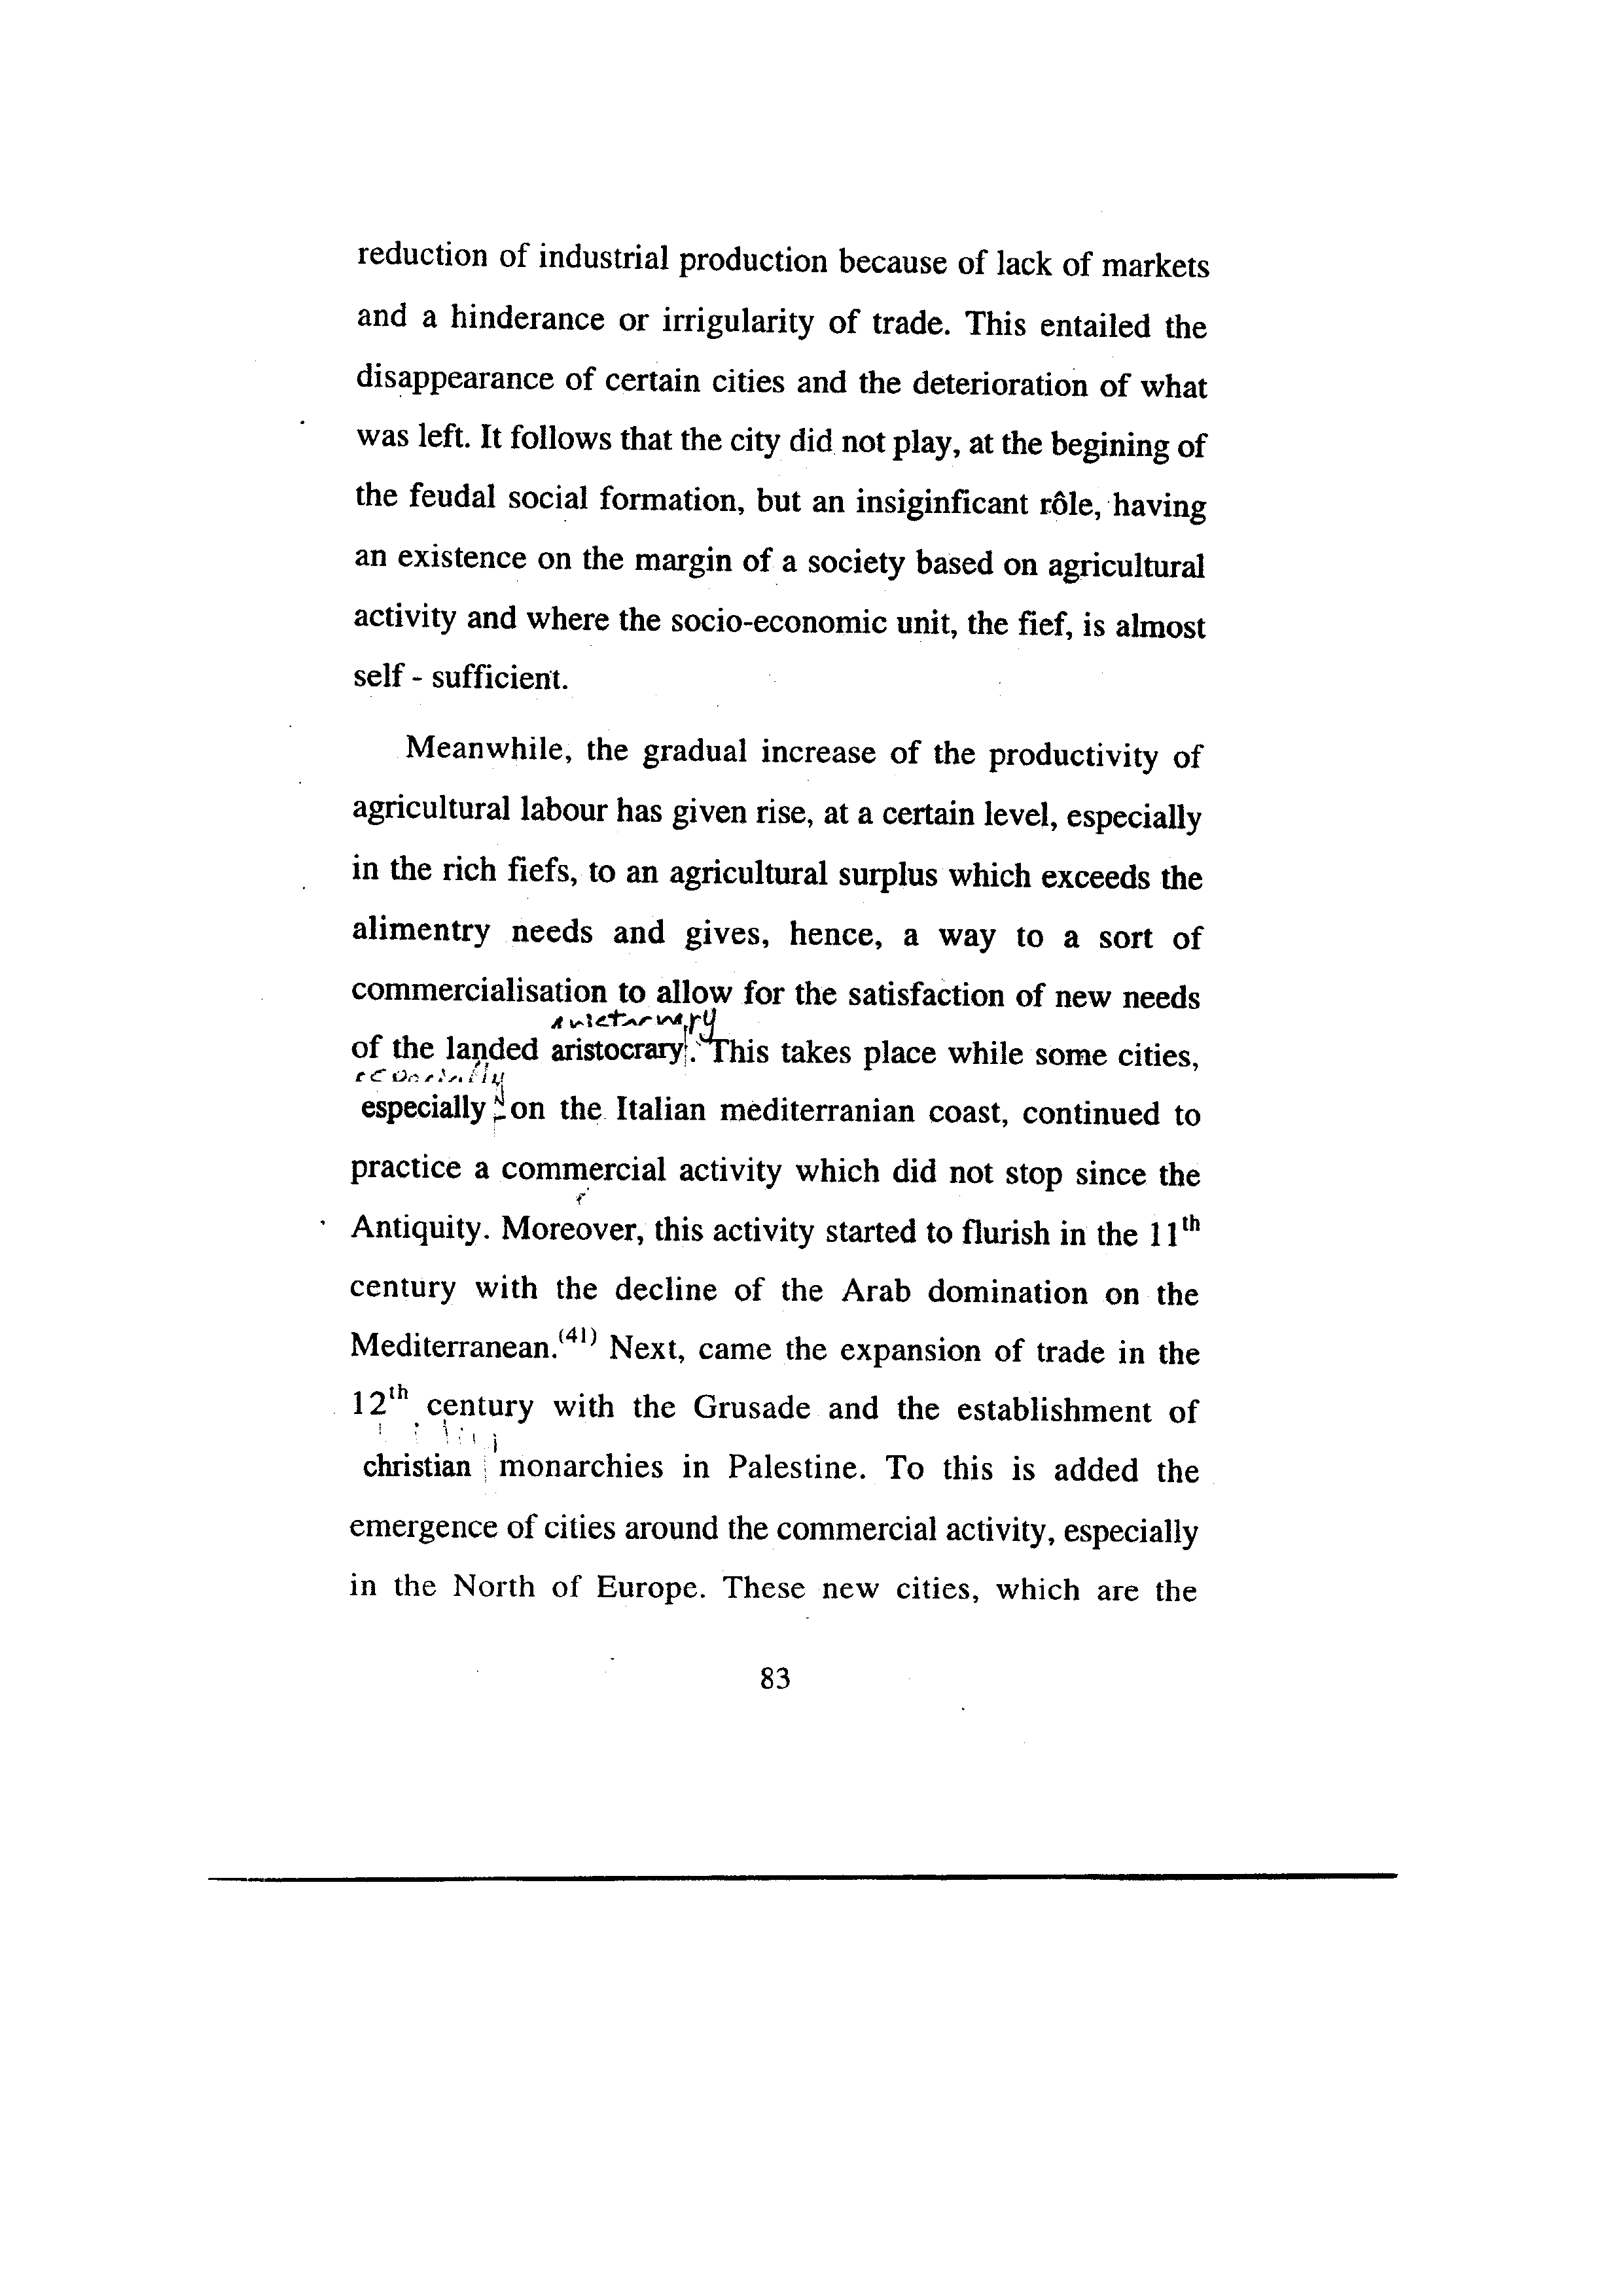 reduction of industrial production because of lack of markets
and a hinderance or irrigularity of trade. This entailed the
disappearance of certain cities and the deterioration of what
was left. It follows that the city did not play, at the begining of
the feudal social formation, but an insiginficant rôle, having
an existence on the margin of a society based on agricultural
activity and where the socio-economic unit, the fief, is almost
self - sufficient.
Meanwhile, the gradual increase of the productivity of
agricultural labour has given rise, at a certain level, especially
in the rich fiefs, to an agricultural surplus which exceeds the
alimentry needs and gives, hence, a way to a sort of
commercialisation to allow for the satisfaction of new needs
of the landed aristocrary. This takes place while some cities,
especially on the Italian mediterranian coast, continued to
practice a commercial activity which did not stop since the
Antiquity. Moreover, this activity started to flurish in the 11th
century with the decline of the Arab domination on the
Mediterranean.(41) Next, came the expansion of trade in the
12th century with the Grusade and the establishment of
christian monarchies in Palestine. To this is added the
emergence of cities around the commercial activity, especially
in the North of Europe. These new cities, which are the
83